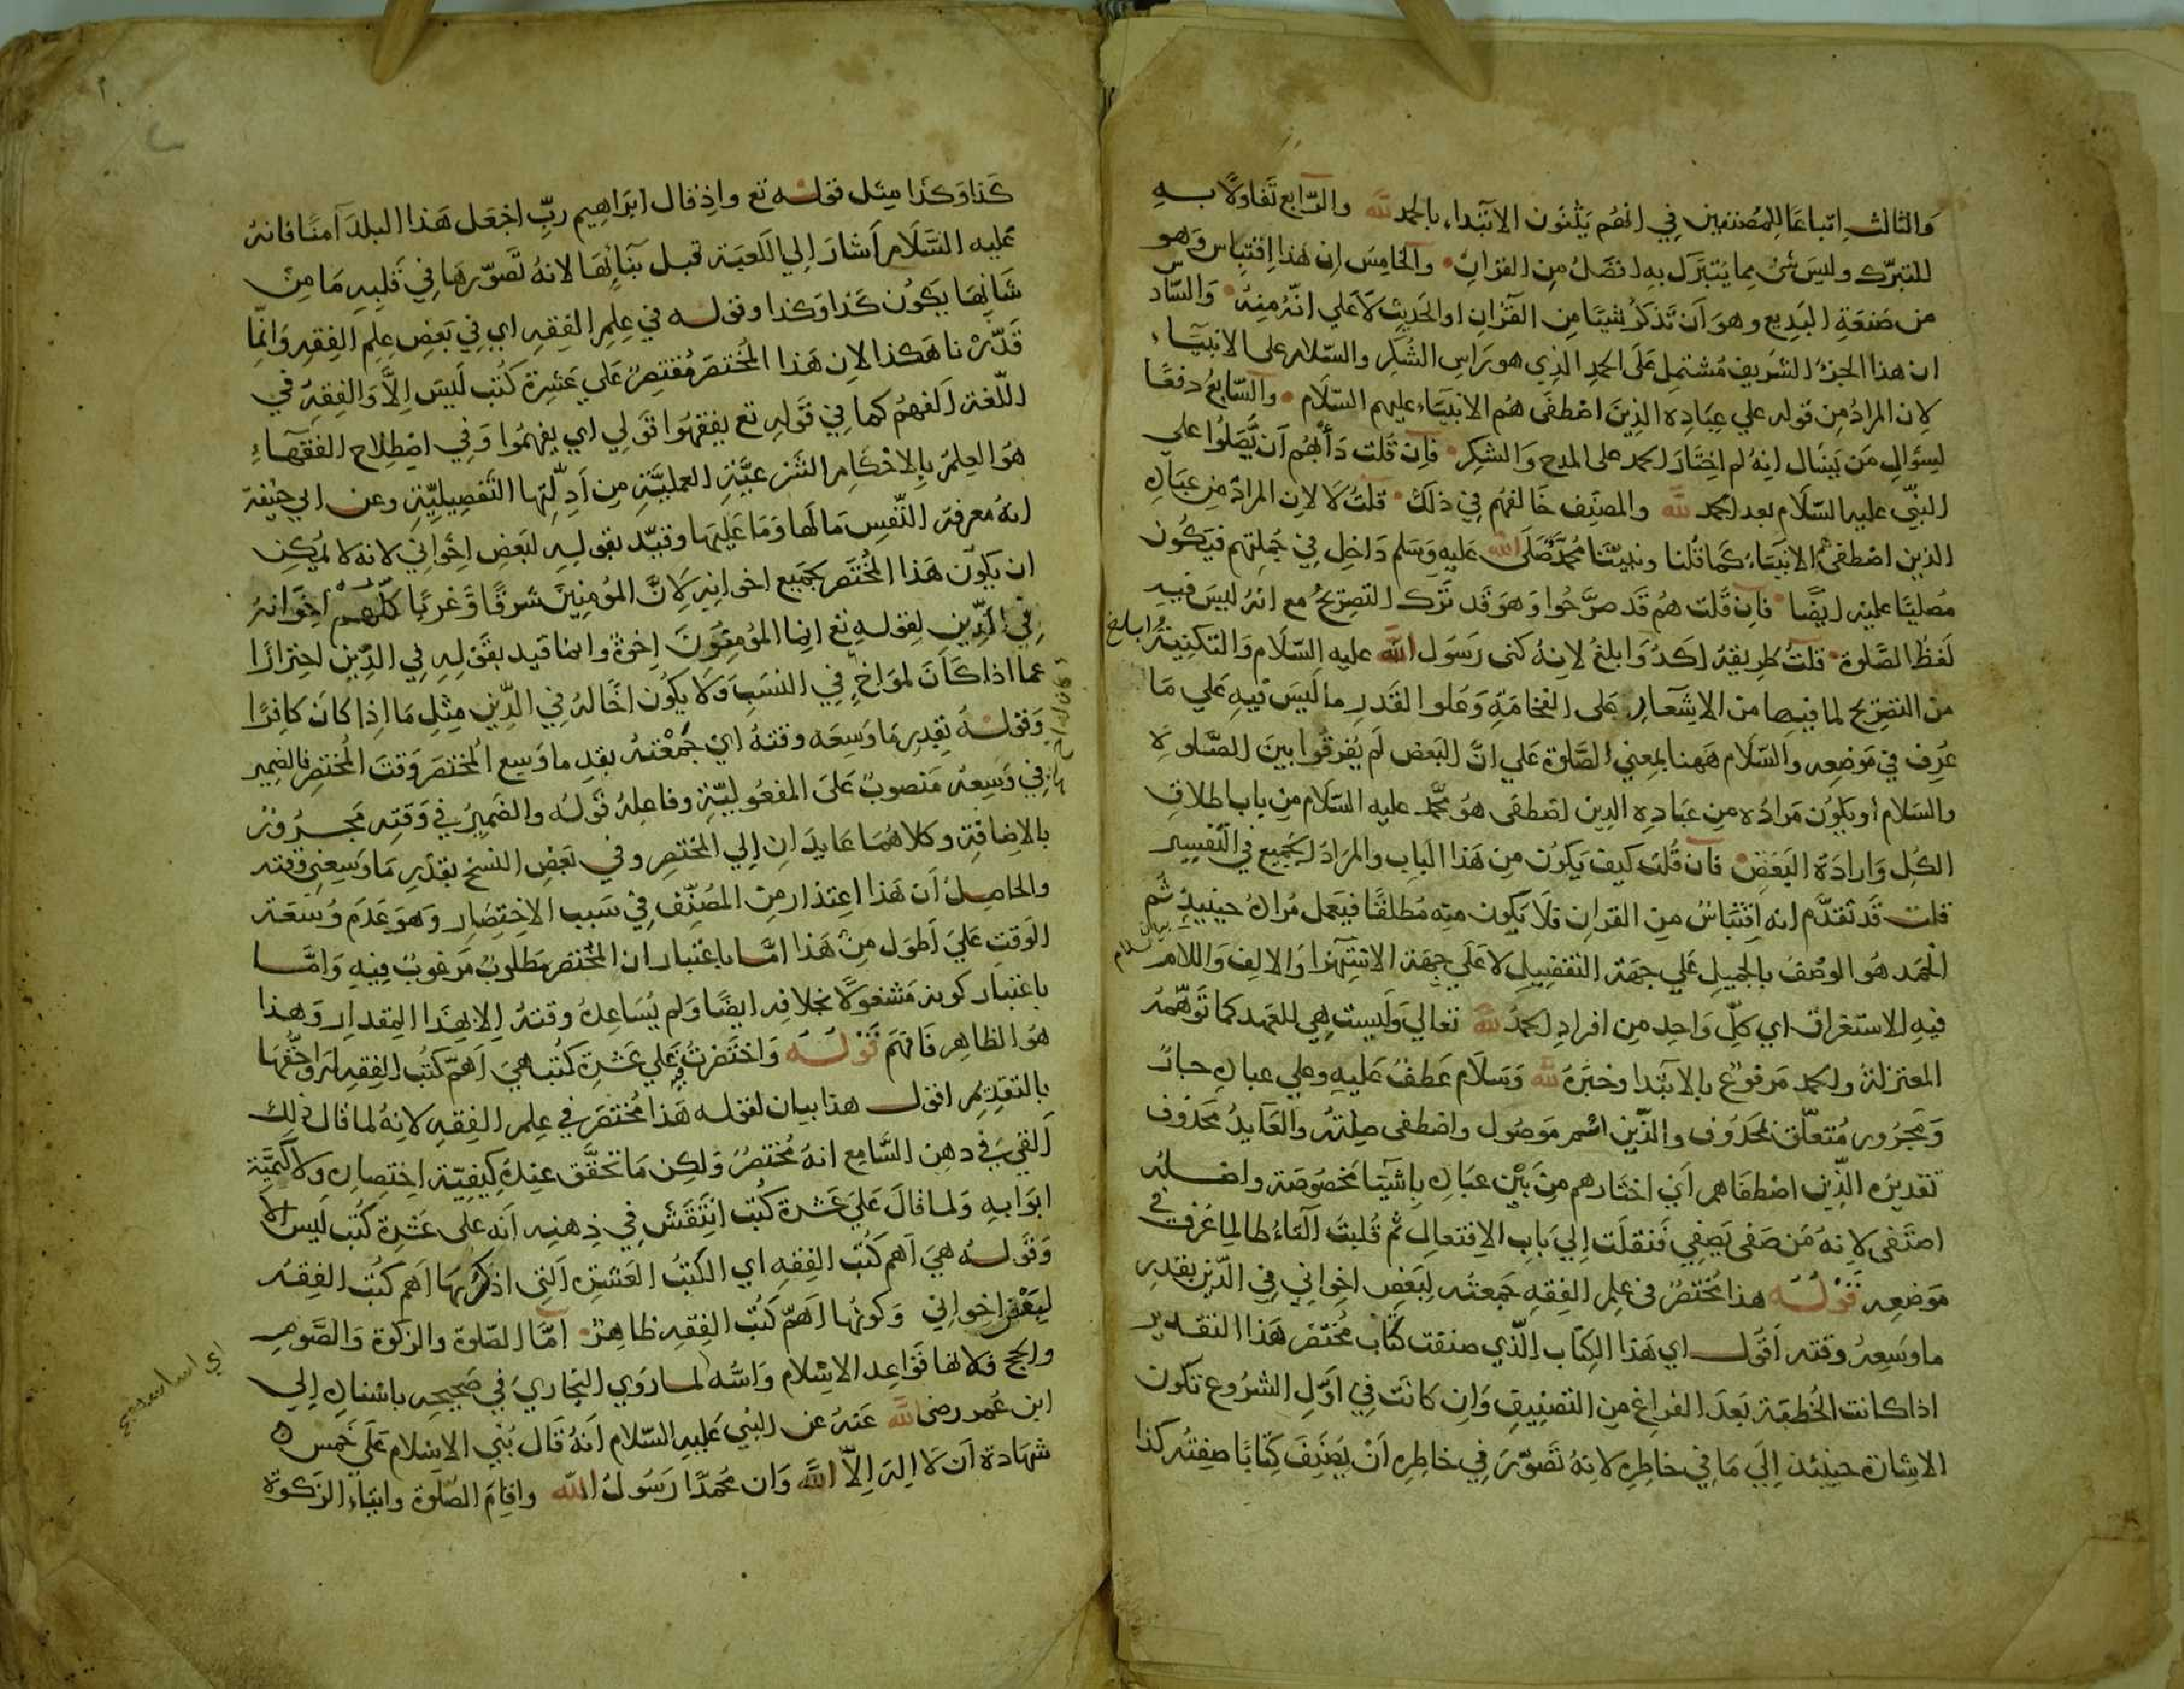 والثالث اتباعا للمصنفين في انهم يثنون الابتداء بالحمد لله والرابع تفاولا به
للتبرك وليس شئ مما يتبرك به افضل من القران والخامس ان هذا اقتباس وهو
من صنعة البديع وهو ان تذكر شيئا من القران او الحديث لا علي انه منه والساد س
ان هذا الجزء الشريف مشتمل علي الحمد الذي هو راس الشكر والسلام على الانبياء
لان المراد من قوله علي عباده الذين اصطفى هم الانبياء عليهم السلام والسابع دفعا
لسؤال من يسال انه لم اختار الحمد على المدح والشكر فان قلت دأبهم ان يصلوا علي
النبي عليه السلام بعد الحمد لله والمصنف خالفهم في ذلك قلت لا لان المراد من عباده
الذين اصطفى هم الانبياء كما قلنا ونبينا محمد صلى الله عليه وسلم داخل في جملتهم فيكون
مصليا عليه ايضا فان قلت هم قد صرحوا وهو قد ترك التصريح مع انه ليس فيه
لفظ الصلوة قلت طريقه اكد وابلغ لانه كنى رسول الله عليه السلام والتكنية ابلغ
من التصريح لما فيها من الاشعار على الفخامة وعلو القدر ما ليس فيه علي ما
عرف في موضعه والسلام ههنا بمعني الصلوة علي ان البعض لم يفرقوا بين الصلوة
والسلام او يكون مراده من عباده الذين اصطفى هو محمد عليه السلام من باب اطلاق
الكل وارادة البعض فان قلت كيف يكون من هذا الباب والمراد الجميع في التفسير
قلت قد تقدم انه اقتباس من القران فلا يكون منه مطلقا فيعمل مراده حينيذ ثم
بيان سلام
الحمد هو الوصف بالجميل علي جهة التفضيل لا علي جهة الاستهزا والالف واللام
فيه الاستغراق اي كل واحد من افراد الحمد لله تعالي وليست هي للعهد كما توهمه
المعتزلة والحمد مرفوع بالابتدا وخبره لله وسلام عطف عليه وعلي عباده جار
ومجرور متعلق بمحذوف والذين اسم موصول واصطفى صلته والعايد محذوف
تقديره الذين اصطفاهم اي اختارهم من بين عباده باشيا مخصوصة واصله
اصتفى لانه من صفى يصفي فنقلت الي باب الافتعال ثم قلبت التاء طا لما عرف في
موضعه قوله هذا مختصر في علم الفقه جمعته لبعض اخواني في الدين بقدر
ما وسعه وقته اقول اي هذا الكتاب الذي صنفت كتاب مختصر هذا التقدير
اذا كانت الخطبة بعد الفراغ من التصنيف وان كانت في اول الشروع تكون
الاشارة حينئذ الي ما في خاطره لانه تصور في خاطره ان يصنف كتابا صفته كذا
كذا وكذا مثل قوله تع واذ قال ابراهيم رب اجعل هذا البلد آمنا فانه
عليه السلام اشار الي الكعبة قبل بنائها لانه تصورها في قلبه ما من
شانها يكون كذا وكذا وقوله في علم الفقه اي في بعض علم الفقه وانما
قدرنا هكذا لان هذا المختصر مقتصر علي عشرة كتب ليس الا والفقه في
اللغة الفهم كما في قوله تع يفقهوا قولي اي يفهموا وفي اصطلاح الفقهاء
هو العلم بالاحكام الشرعية العملية من ادلتها التفصيلية وعن ابي حنيفة
انه معرفة النفس ما لها وما عليها وقيد بقوله لبعض اخواني لانه لا يمكن
ان يكون هذا المختصر لجميع اخوانه لان المؤمنين شرقا وغربا كلهم اخوانه
في الدين لقوله تع انما المؤمنون اخوة وانما قيد بقوله في الدين احترازا
عما اذا كان لمواخ في النسب ولا يكون اخا له في الدين مثل ما اذا كان كافرا
وقوله بقدر ما وسعه وقته اي جمعته بقدر ما وسع المختصر وقت المختصر فالضمير
في وسعه منصوب علي المفعولية وفاعله قوله والضمير في وقته مجرور
بالاضافة وكلاهما عايدان الي المختصر وفي بعض النسخ بقدر ما وسعني وقته
والحاصل ان هذا اعتذار من المصنف في سبب الاختصار وهو عدم وسعة
الوقت علي اطول من هذا اما باعتبار ان المختصر مطلوب مرغوب فيه واما
باعتبار كونه مشغولا بخلافه ايضا ولم يساعده وقته الا بهذا المقدار وهذا
هو الظاهر فافهم قوله واختصرته علي عشرة كتب هي اهم كتب الفقه له واحقها
بالتقديم اقول هذا بيان لقوله هذا مختصر في علم الفقه لانه لما قال ذلك
القي في ذهن السامع انه مختصر ولكن ما تحقق عنده كيفية اختصاره ولا كمية
ابوابه ولما قال علي عشرة كتب انتقش في ذهنه انه على عشرة كتب ليس الا
وقوله هي اهم كتب الفقه اي الكتب العشرة التي اذكرها اهم كتب الفقه
لبعض اخواني وكونها اهم كتب الفقه ظاهر اما الصلوة والزكوة والصوم
والحج فلانها قواعد الاسلام واسه لما روي البخاري في صحيحه باسناده الي
ابن عمر رضى الله عنه عن النبي عليه السلام انه قال بني الاسلام علي خمس
شهادة ان لا اله الا الله وان محمدا رسول الله واقام الصلوة وايتاء الزكوة